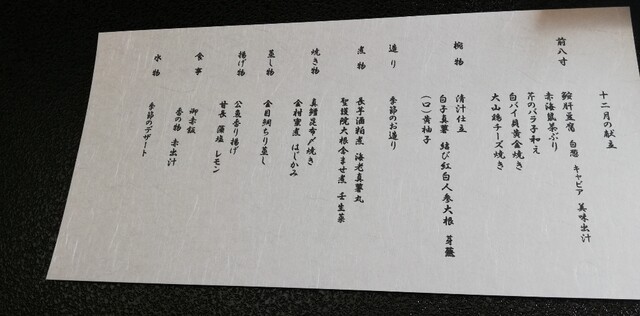 十二月の献立
前八寸
鮟肝豆腐 白葱 キャビア 美味出汁
赤海鼠茶ぶり
芹のバラ子和え
白バイ貝黄金焼き
大山鶏チーズ焼き
椀物
清汁仕立
白子真薯 結び紅白人参大根 芽蕪
(口)黄柚子
造り
季節のお造り
煮物
長芋酒粕煮 海老真薯丸
聖護院大根含ませ煮 壬生菜
焼き物
真鱈昆布〆焼き
金柑蜜煮 はじかみ
蒸し物
金目鯛ちり蒸し
揚げ物
公魚香り揚げ
甘長 藻塩 レモン
食事
御赤飯
香の物 赤出汁
水物
季節のデザート